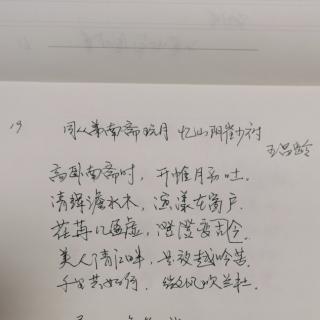 19 同从弟南斋玩月忆山阴崔少府
王昌龄
高卧南斋时，开帷月初吐。
清辉澹水木，演漾在窗户。
荏苒几盈虚，澄澄变古今。
美人清江畔，是夜越吟苦。
千里共如何，微风吹兰杜。